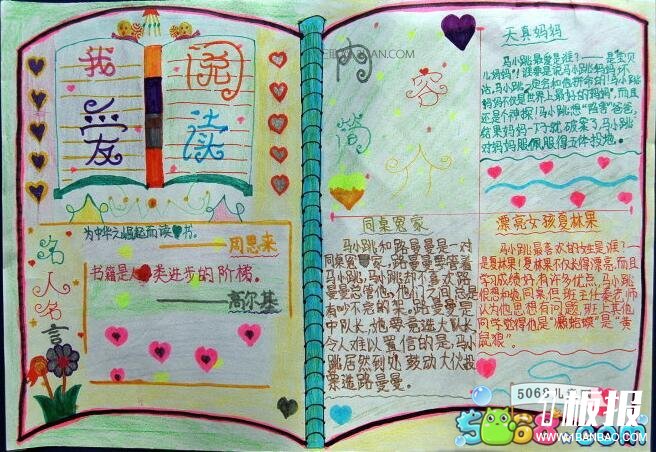 我爱
阅读
为中华之崛起而读书。
周恩来
书籍是人类进步的阶梯。
高尔基
名人名言
内容简介
天真妈妈
马小跳最爱是谁？——是宝贝
儿妈妈！谁要是说马小跳妈妈坏
话，马小跳一定会和他拼命的！马小跳
妈妈不仅是世界上最好的妈妈，而且
还是个神探！马小跳想“陷害”爸爸，
结果妈妈一下子就破案了，马小跳
对妈妈服佩服得五体投地。
同桌冤家
马小跳和路曼曼是一对
同桌冤家，路曼曼要管着
马小跳，马小跳却不喜欢路
曼曼总管他，他们之间总是
有吵不完的架。路曼曼是
中队长，她要竞选大队长，
令人难以置信的是，马小
跳居然到处鼓动大伙投
票选路曼曼。
漂亮女孩夏林果
马小跳最喜欢的女生是谁？—
—是夏林果！夏林果不仅长得漂亮，而且
学习成绩好，有许多优点，马小跳
很想和她同桌，但班主任秦老师
认为他思想有问题，班上其他
同学觉得他是“癞蛤蟆”是“黄
鼠狼”。
5068儿
板报
5068.com
WWW.41BANBAO.COM